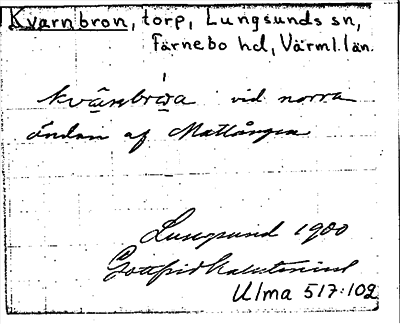 Kvarnbron, torp, Lungsunds sn,
Färnebo hd, Värml. län.
kvânbròa vid norra
ändan af Mattången
Lungsund 1900
Gottfrid Kallstenius
Ulma 517:102